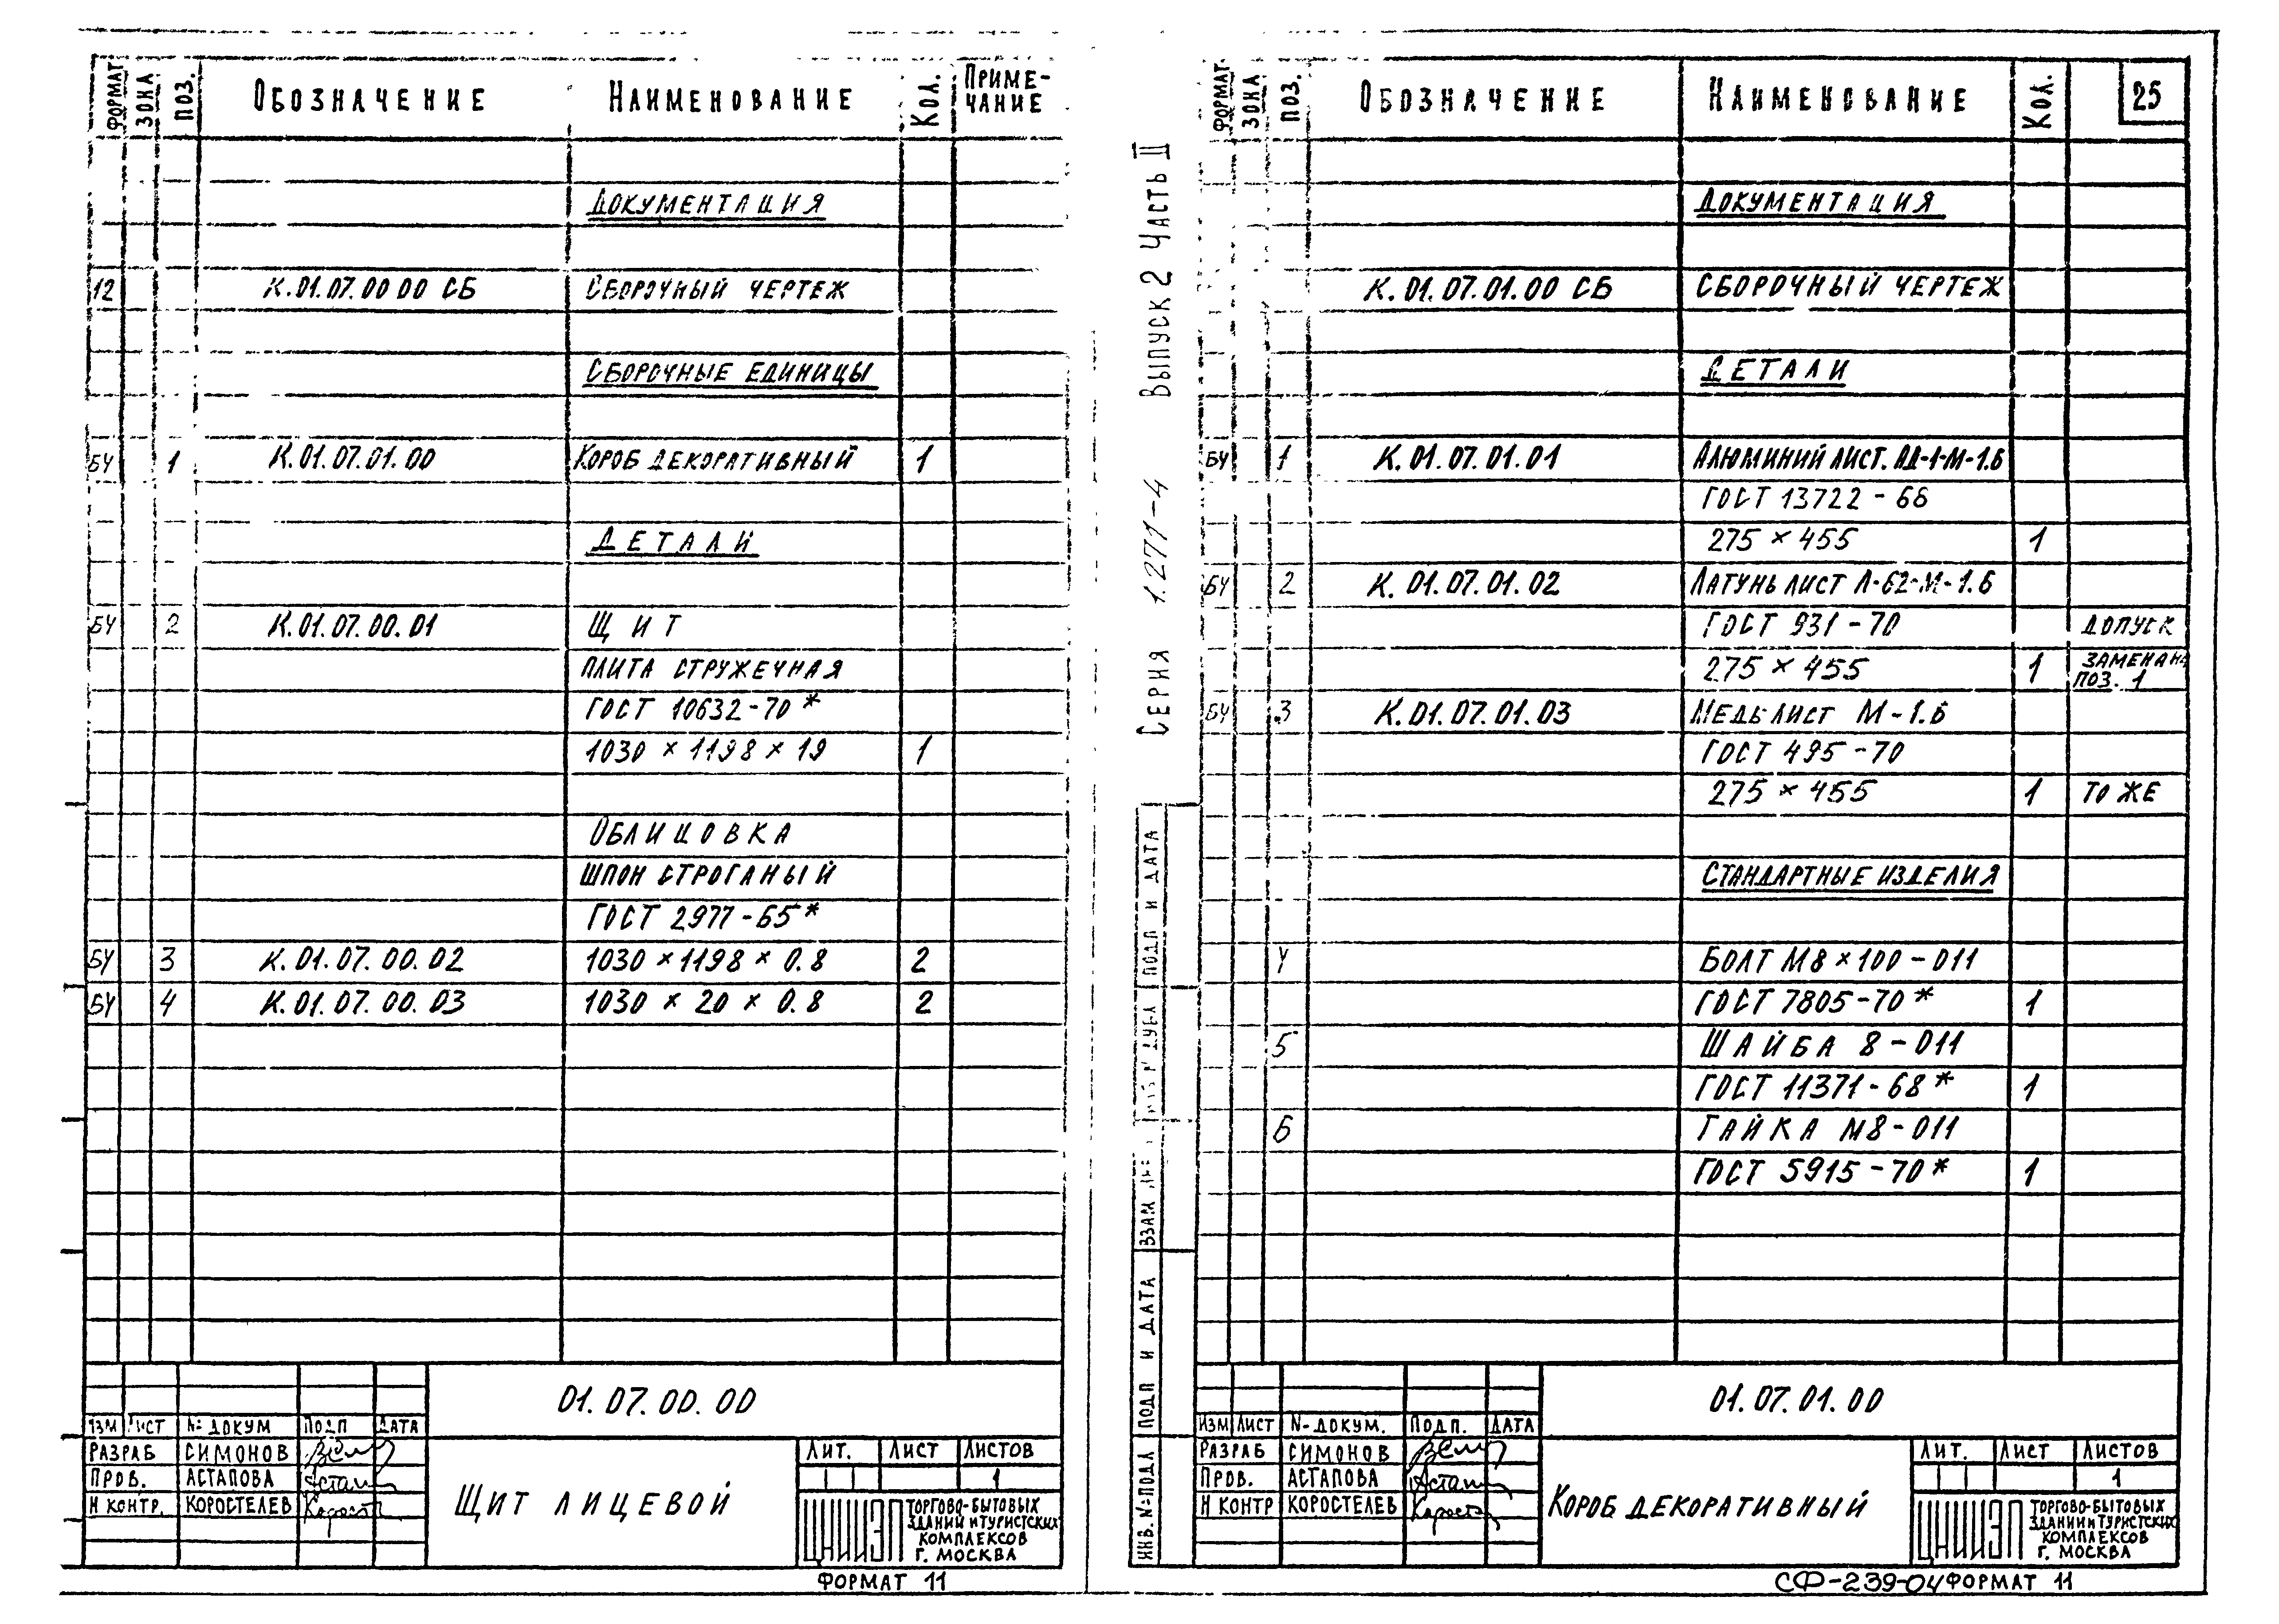 ФОРМАТ ЗОНА ПОЗ. ОБОЗНАЧЕНИЕ НАИМЕНОВАНИЕ КОЛ. ПРИМЕ-
ЧАНИЕ
ДОКУМЕНТАЦИЯ
12 К.01.07.00 00 СБ СБОРОЧНЫЙ ЧЕРТЕЖ
СБОРОЧНЫЕ ЕДИНИЦЫ
БЧ 1 К.01.07.01.00 КОРОБ ДЕКОРАТИВНЫЙ 1
ДЕТАЛИ
БЧ 2 К.01.07.00.01 ЩИТ
ПЛИТА СТРУЖЕЧНАЯ
ГОСТ 10632-70*
1030 × 1198 × 19 1
ОБЛИЦОВКА
ШПОН СТРОГАНЫЙ
ГОСТ 2977-65*
БЧ 3 К.01.07.00.02 1030 × 1198 × 0.8 2
БЧ 4 К.01.07.00.03 1030 × 20 × 0.8 2
01.07.00.00
ИЗМ ЛИСТ № ДОКУМ ПОДП ДАТА
РАЗРАБ СИМОНОВ
ПРОВ. АСТАПОВА
Н КОНТР. КОРОСТЕЛЕВ
ЩИТ ЛИЦЕВОЙ
ЛИТ. ЛИСТ ЛИСТОВ
1
ЦНИИЭП ТОРГОВО-БЫТОВЫХ
ЗДАНИЙ И ТУРИСТСКИХ
КОМПЛЕКСОВ
Г. МОСКВА
ФОРМАТ 11
СЕРИЯ 1.271-4 ВЫПУСК 2 ЧАСТЬ II
ФОРМАТ ЗОНА ПОЗ. ОБОЗНАЧЕНИЕ НАИМЕНОВАНИЕ КОЛ. 25
ДОКУМЕНТАЦИЯ
К.01.07.01.00 СБ СБОРОЧНЫЙ ЧЕРТЕЖ
ДЕТАЛИ
БЧ 1 К.01.07.01.01 АЛЮМИНИЙ ЛИСТ. АД-1-М-1.6
ГОСТ 13722-68
275 × 455 1
БЧ 2 К.01.07.01.02 ЛАТУНЬ ЛИСТ Л-62-М-1.6
ГОСТ 931-70 ДОПУСК
275 × 455 1 ЗАМЕНА НА
ПОЗ. 1
БЧ 3 К.01.07.01.03 МЕДЬ ЛИСТ М-1.6
ГОСТ 495-70
275 × 455 1 ТО ЖЕ
СТАНДАРТНЫЕ ИЗДЕЛИЯ
4 БОЛТ М8×100-011
ГОСТ 7805-70* 1
5 ШАЙБА 8-011
ГОСТ 11371-68* 1
6 ГАЙКА М8-011
ГОСТ 5915-70* 1
ИНВ. № ПОДЛ ПОДП И ДАТА ВЗАМ ИНВ ПОДП И ДАТА
01.07.01.00
ИЗМ ЛИСТ №-ДОКУМ. ПОДП. ДАТА
РАЗРАБ СИМОНОВ
ПРОВ. АСТАПОВА
Н КОНТР КОРОСТЕЛЕВ
КОРОБ ДЕКОРАТИВНЫЙ
ЛИТ. ЛИСТ ЛИСТОВ
1
ЦНИИЭП ТОРГОВО-БЫТОВЫХ
ЗДАНИЙ И ТУРИСТСКИХ
КОМПЛЕКСОВ
Г. МОСКВА
СФ-239-04 ФОРМАТ 11